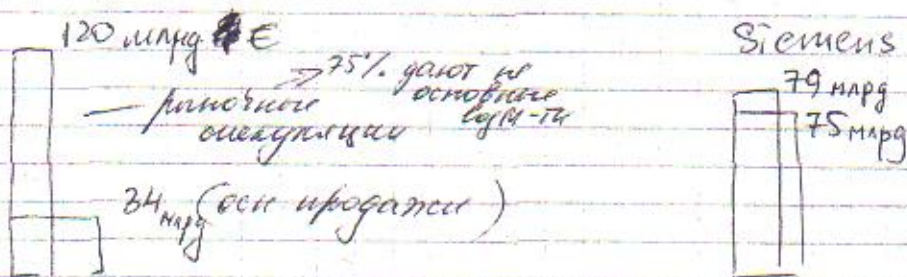 120 млрд €
рыночные спекуляции
⇒ 75% дают не основные
34 млрд (осн продажи)
Siemens
79 млрд
75 млрд